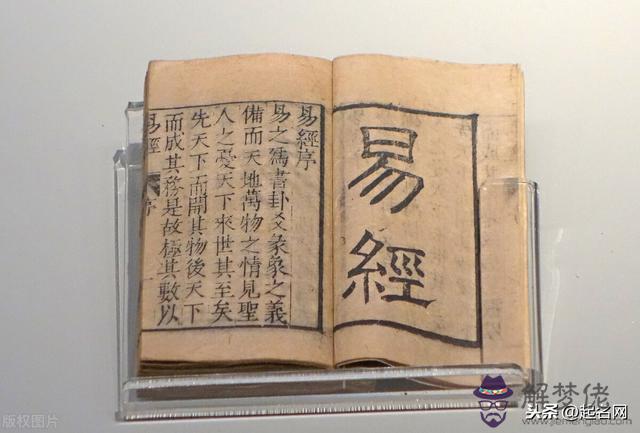 易經
易經序
易之爲書卦爻彖象之義
備而天地萬物之情見聖
人之憂天下來世其至矣
先天下而開其物後天下
而成其務是故極其數以
易經 序
解梦佬
头条 @起名网
版权图片